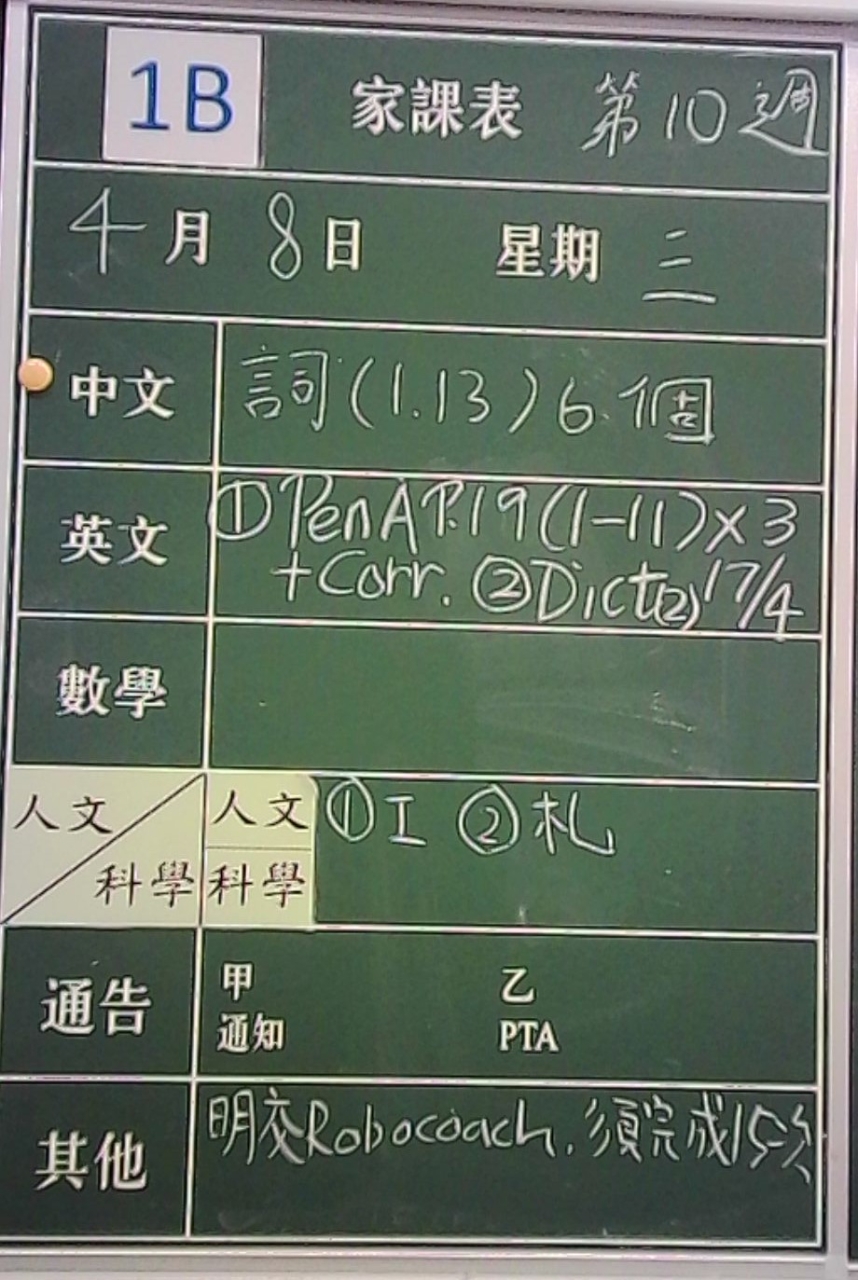 1B 家課表 第10週
4月8日 星期三
中文 詞(1.13)6個
英文 ①PenA P.19(1-11)×3
+Corr. ②Dict(2)17/4
數學
人文 人文 ①工 ②札
科學 科學
通告 甲 乙
通知 PTA
其他 明交Robocoach,須完成15次